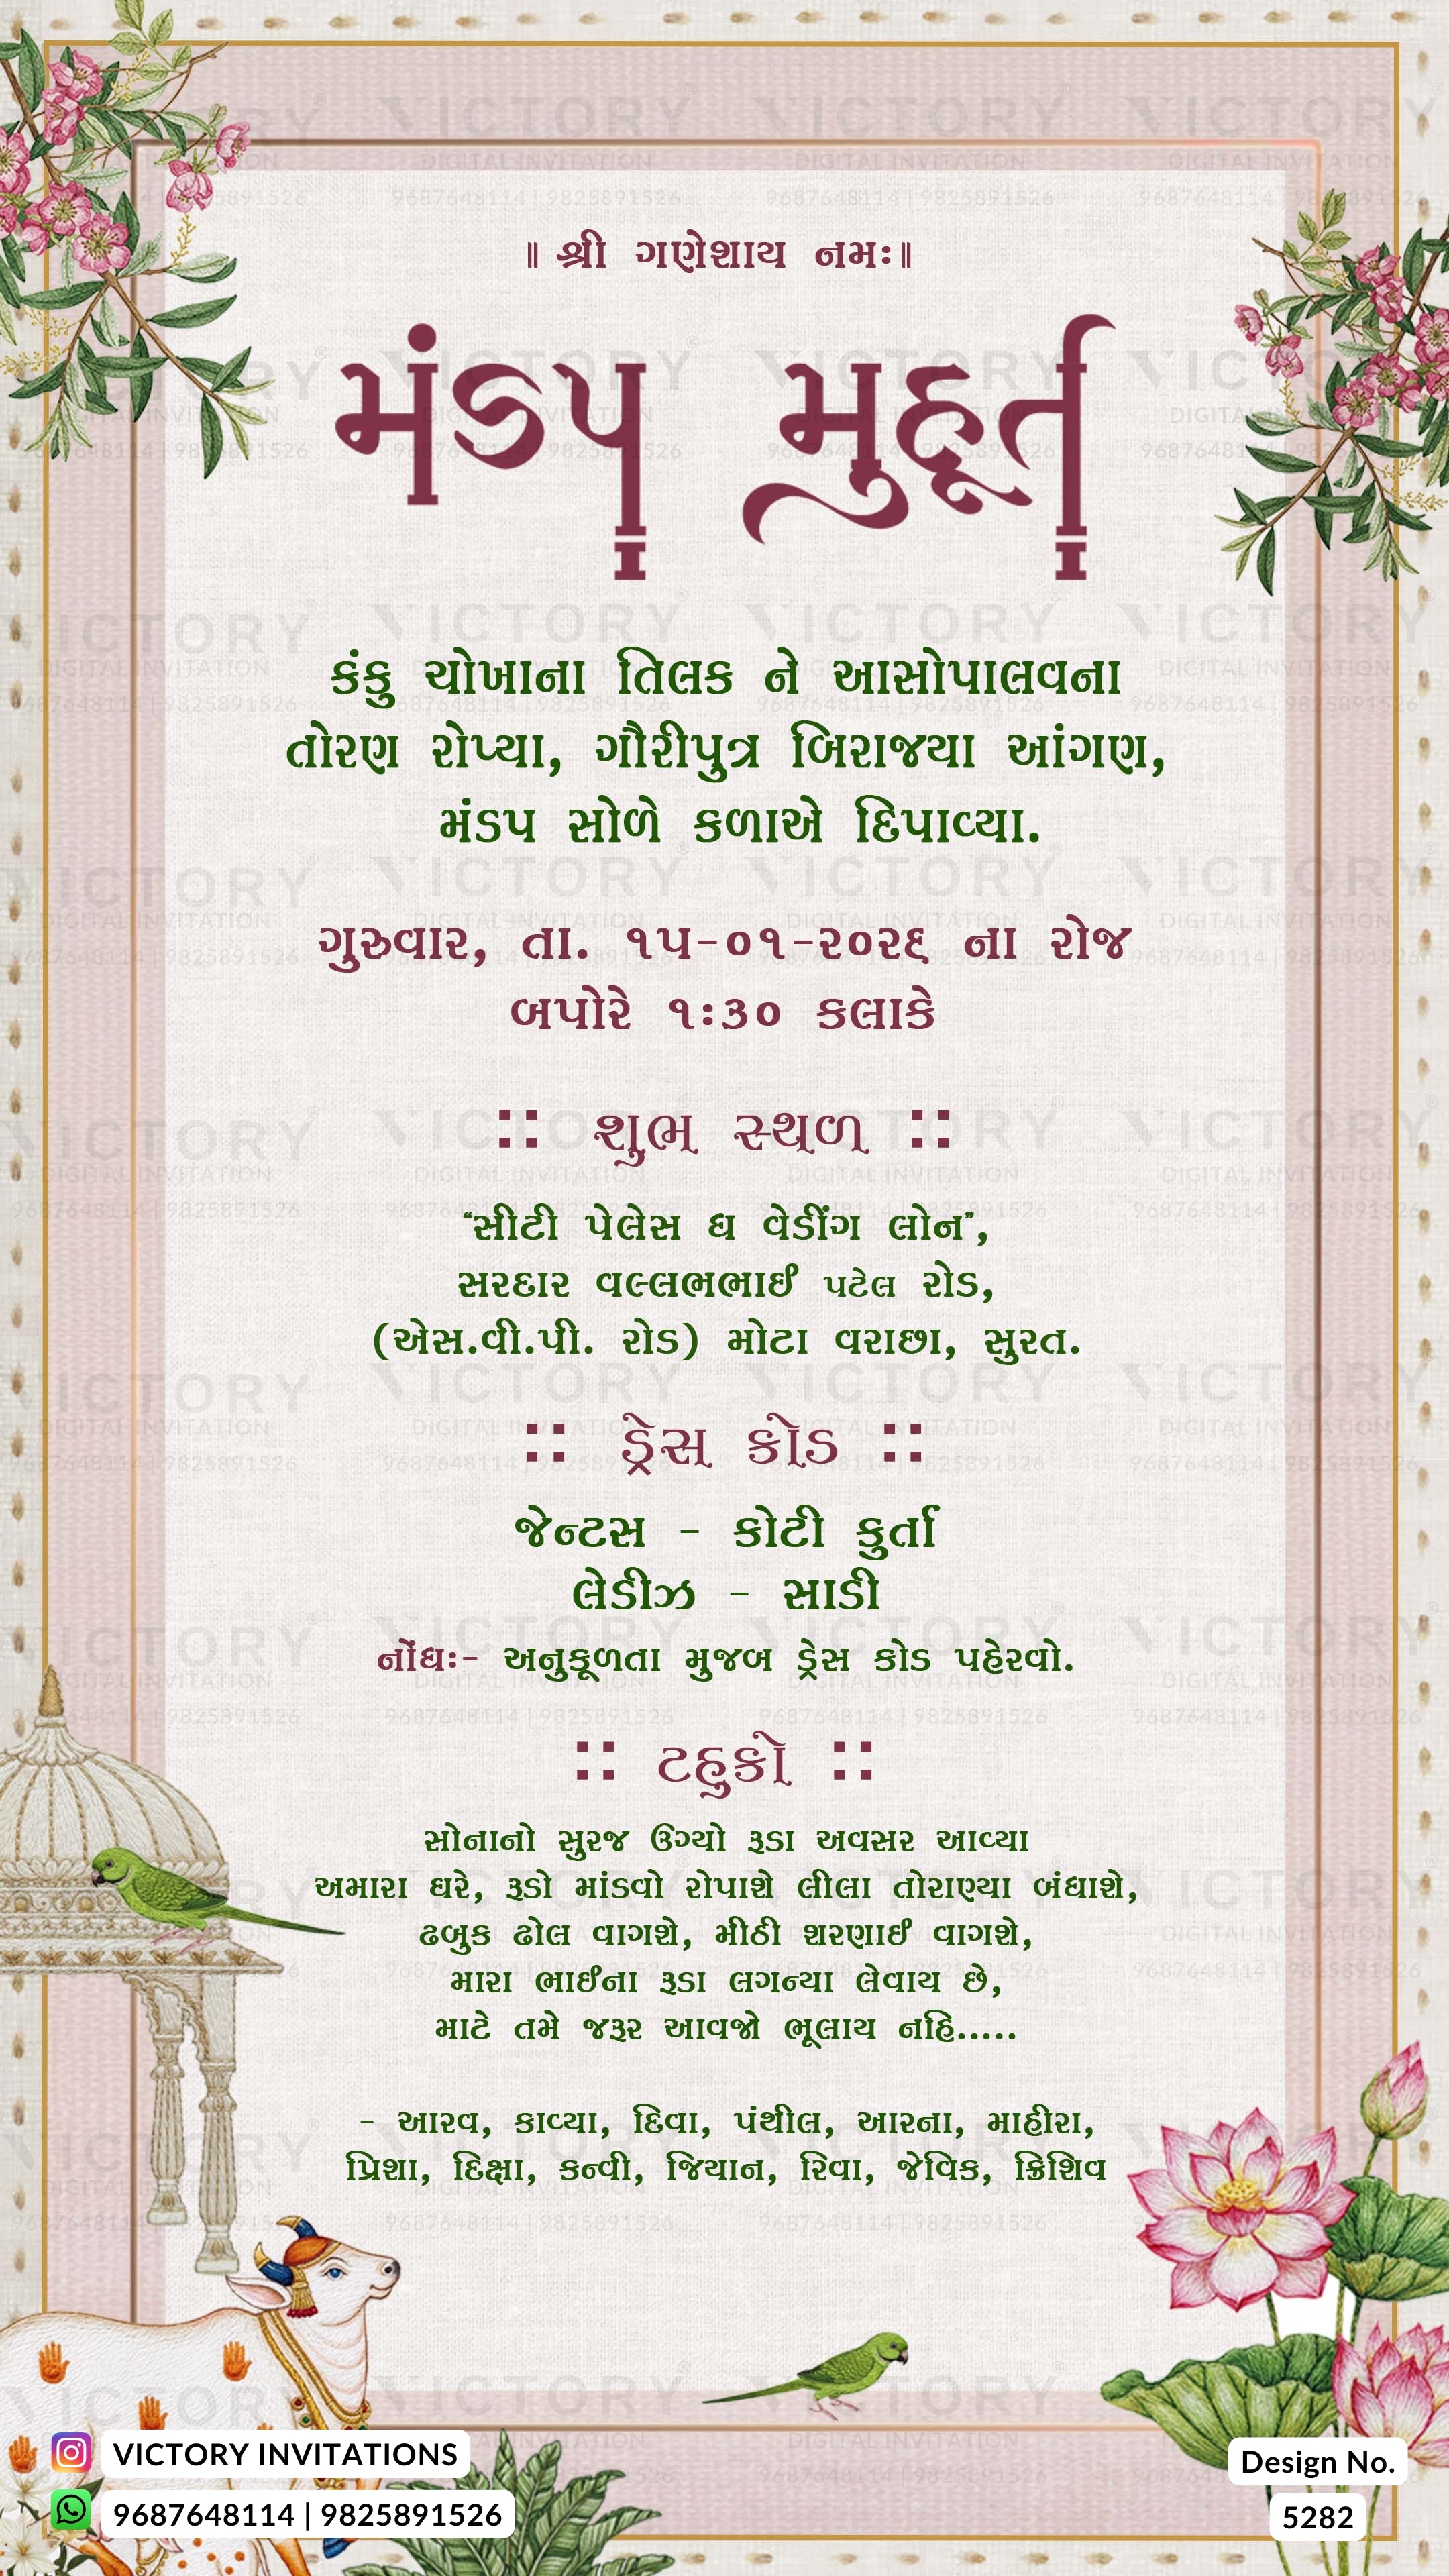 ॥ શ્રી ગણેશાય નમઃ॥
મંડપ મુહૂર્ત
કંકુ ચોખાના તિલક ને આસોપાલવના
તોરણ રોપ્યા, ગૌરીપુત્ર બિરાજ્યા આંગણ,
મંડપ સોળે કળાએ દિપાવ્યા.
ગુરુવાર, તા. ૧૫-૦૧-૨૦૨૬ ના રોજ
બપોરે ૧:૩૦ કલાકે
:: શુભ સ્થળ ::
“સીટી પેલેસ ધ વેડીંગ લોન”,
સરદાર વલ્લભભાઈ પટેલ રોડ,
(એસ.વી.પી. રોડ) મોટા વરાછા, સુરત.
:: ડ્રેસ કોડ ::
જેન્ટસ - કોટી કુર્તા
લેડીઝ - સાડી
નોંધઃ- અનુકૂળતા મુજબ ડ્રેસ કોડ પહેરવો.
:: ટહુકો ::
સોનાનો સુરજ ઉગ્યો રૂડા અવસર આવ્યા
અમારા ઘરે, રૂડો માંડવો રોપાશે લીલા તોરાણ્યા બંધાશે,
ઢબુક ઢોલ વાગશે, મીઠી શરણાઈ વાગશે,
મારા ભાઈના રૂડા લગન્યા લેવાય છે,
માટે તમે જરૂર આવજો ભૂલાય નહિ.....
- આરવ, કાવ્યા, દિવા, પંથીલ, આરના, માહીરા,
પ્રિશા, દિક્ષા, કન્વી, જિયાન, રિવા, જેવિક, ક્રિશિવ
VICTORY INVITATIONS
9687648114 | 9825891526
Design No.
5282
VICTORY
DIGITAL INVITATION
9687648114 | 9825891526